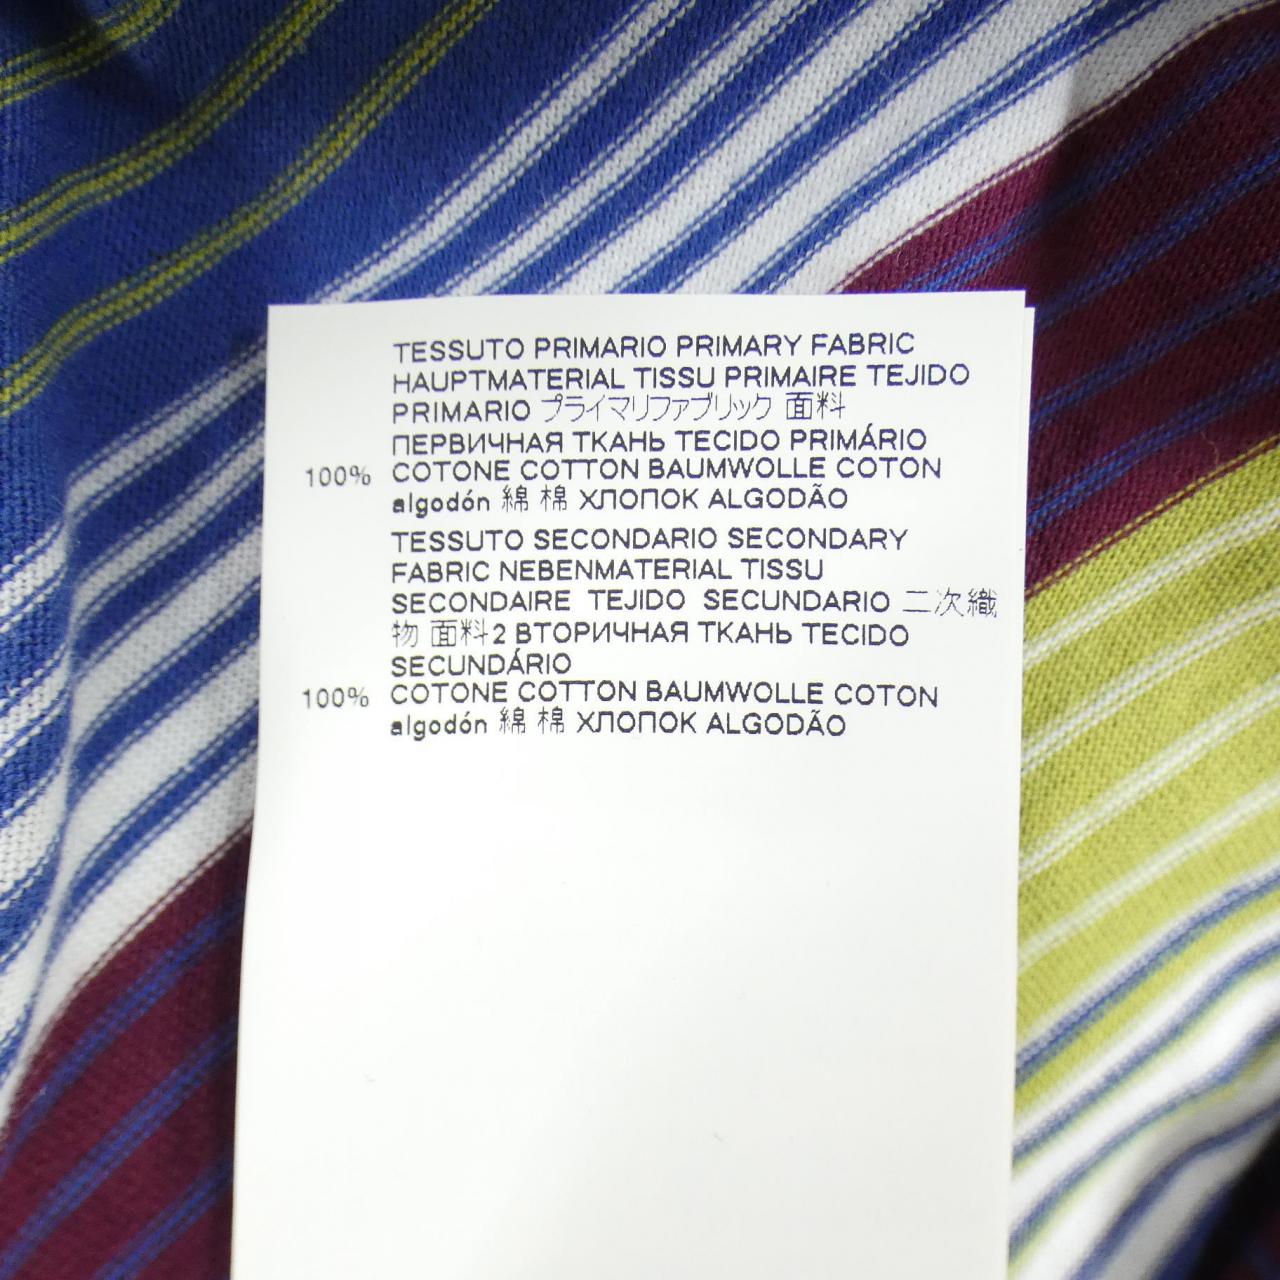 TESSUTO PRIMARIO PRIMARY FABRIC
HAUPTMATERIAL TISSU PRIMAIRE TEJIDO
PRIMARIO プライマリファブリック 面料
ПЕРВИЧНАЯ ТКАНЬ TECIDO PRIMÁRIO
100% COTONE COTTON BAUMWOLLE COTON
algodón 綿 棉 ХЛОПОК ALGODÃO
TESSUTO SECONDARIO SECONDARY
FABRIC NEBENMATERIAL TISSU
SECONDAIRE TEJIDO SECUNDARIO 二次織
物 面料2 ВТОРИЧНАЯ ТКАНЬ TECIDO
SECUNDÁRIO
100% COTONE COTTON BAUMWOLLE COTON
algodón 綿 棉 ХЛОПОК ALGODÃO